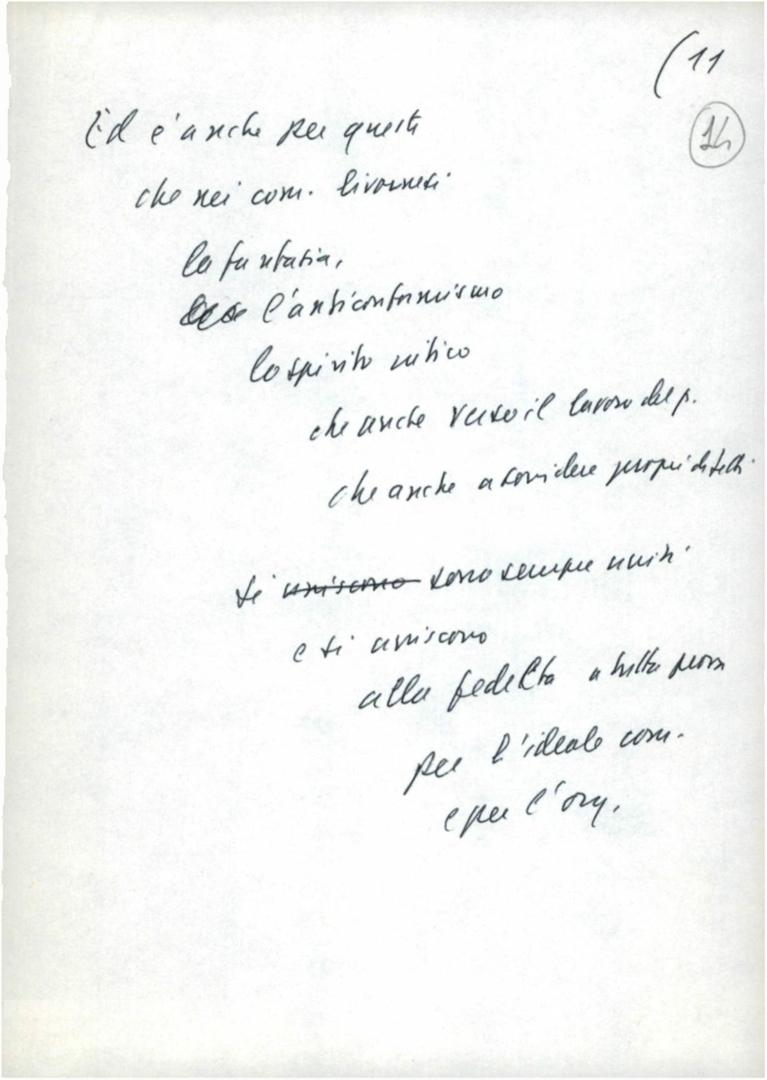 (11
14
Ed è anche per questi
che nei com. livornesi
la fantasia,
l'anticonformismo
lo spirito critico
che anche verso il lavoro del p.
che anche a sorridere propri difetti
si uniscono sono sempre uniti
e si uniscono
alla fedeltà a tutta prova
per l'ideale com.
e per l'org.